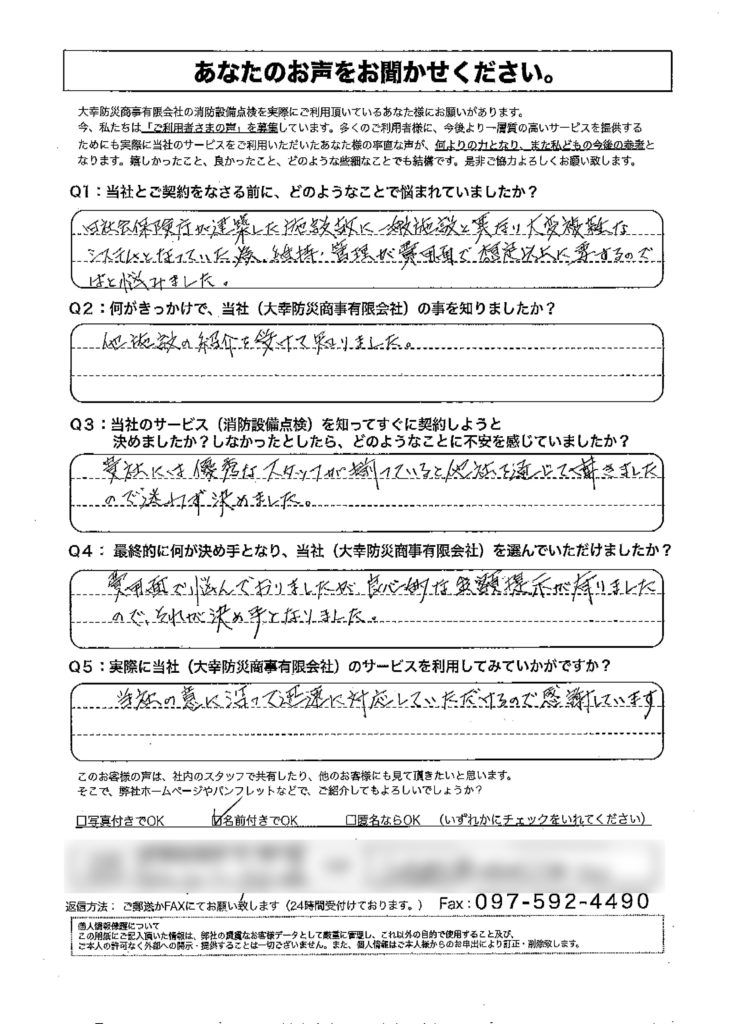 あなたのお声をお聞かせください。
大幸防災商事有限会社の消防設備点検を実際にご利用頂いているあなた様にお願いがあります。
今、私たちは「ご利用者さまの声」を募集しています。多くのご利用者様に、今後より一層質の高いサービスを提供する
ためにも実際に当社のサービスをご利用いただいたあなた様の率直な声が、何よりの力となり、また私どもの今後の参考と
なります。嬉しかったこと、良かったこと、どのような些細なことでも結構です。是非ご協力よろしくお願い致します。
Q1：当社とご契約をなさる前に、どのようなことで悩まれていましたか？
旧社会保険庁が建築した施設故に一般施設と異なり大変複雑な
システムとなっていた為、維持・管理が費用面で想定以上に要するので
はと悩みました。
Q2：何がきっかけで、当社（大幸防災商事有限会社）の事を知りましたか？
他施設の紹介を受けて知りました。
Q3：当社のサービス（消防設備点検）を知ってすぐに契約しようと
決めましたか？しなかったとしたら、どのようなことに不安を感じていましたか？
貴社には優秀なスタッフが揃っていると他社を通じて聞きました
ので迷わず決めました。
Q4： 最終的に何が決め手となり、当社（大幸防災商事有限会社）を選んでいただけましたか？
費用面で悩んでおりましたが、良心的な金額提示が有りました
ので、それが決め手となりました。
Q5：実際に当社（大幸防災商事有限会社）のサービスを利用してみていかがですか？
当社の意に沿って迅速に対応していただけるので感謝しています
このお客様の声は、社内のスタッフで共有したり、他のお客様にも見て頂きたいと思います。
そこで、弊社ホームページやパンフレットなどで、ご紹介してもよろしいでしょうか？
□写真付きでOK ☑名前付きでOK □匿名ならOK （いずれかにチェックをいれてください）
返信方法： ご郵送かFAXにてお願い致します（24時間受付ております。） Fax：097-592-4490
個人情報保護について
この用紙にご記入頂いた情報は、弊社の貴重なお客様データとして厳重に管理し、これ以外の目的で使用すること及び、
ご本人の許可なく外部への開示・提供することは一切ございません。また、個人情報はご本人様からのお申出により訂正・削除致します。